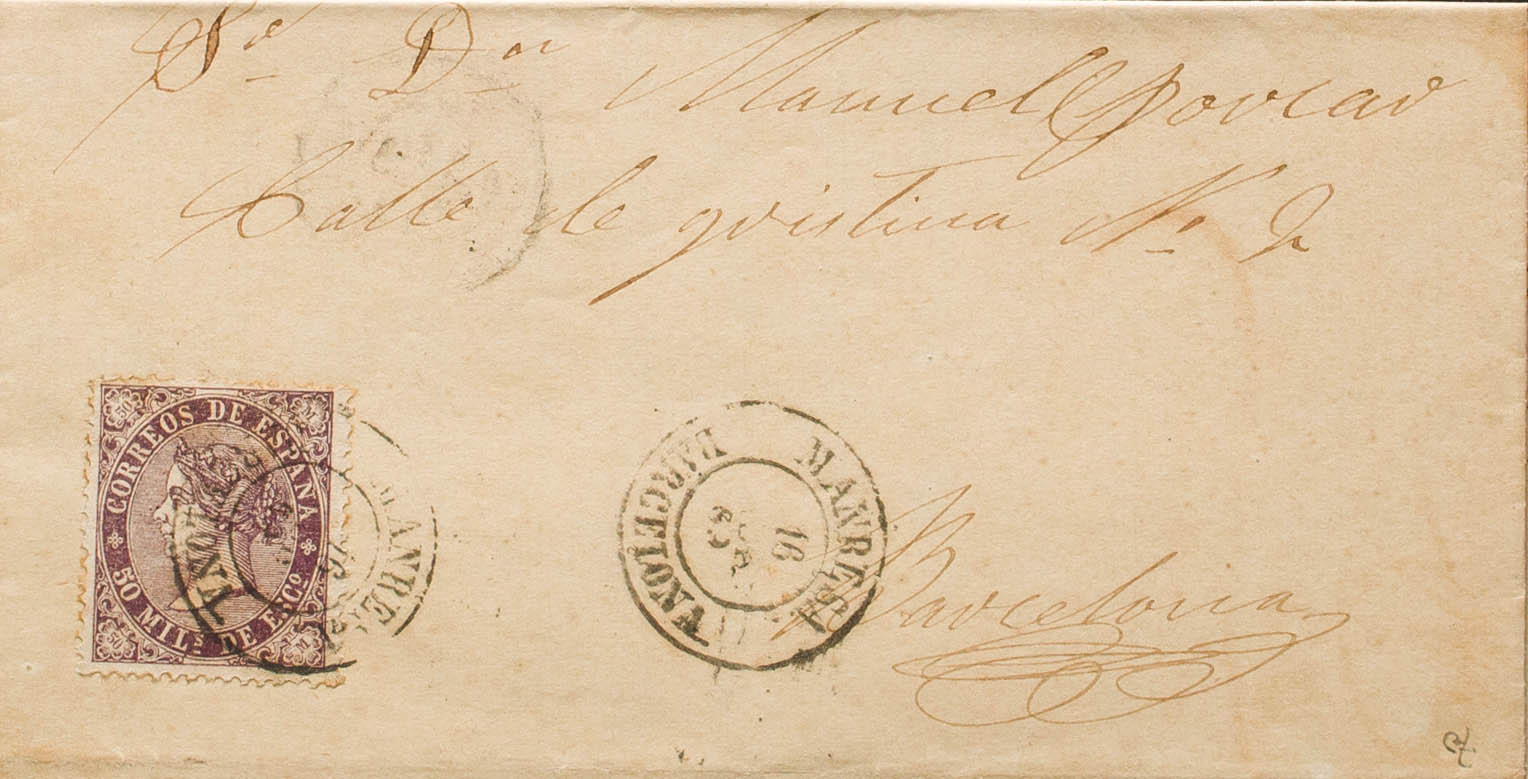 Sr Dn Manuel
Calle de gristina No 2
CORREOS DE ESPAÑA
50 MILS DE ESCO
BARCELONA
MANRE
MANRESA
16
BARCELONA
Barcelona